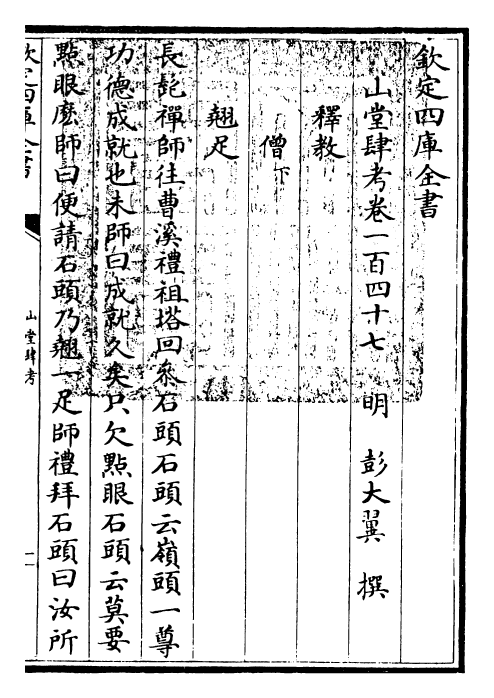 欽定四庫全書
山堂肆考卷一百四十七 明 彭大翼 撰
釋教
僧下
翹足
長髭禪師往曹溪禮祖塔回參石頭石頭云嶺頭一尊
功德成就也未師曰成就久矣只欠點眼石頭云莫要
點眼麽師曰便請石頭乃翹一足師禮拜石頭曰汝所
欽定四庫全書
山堂肆考